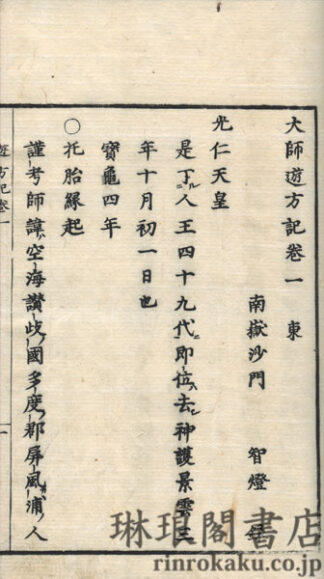 大師遊方記卷一 東
南嶽沙門 智燈
光仁天皇
是丁人王四十九代即位去神護景雲三
年十月初一日也
寶龜四年
○托胎緣起
謹考師諱空海讃岐國多度郡屏風浦人
遊方記卷一
一
琳琅閣書店
rinrokaku.co.jp